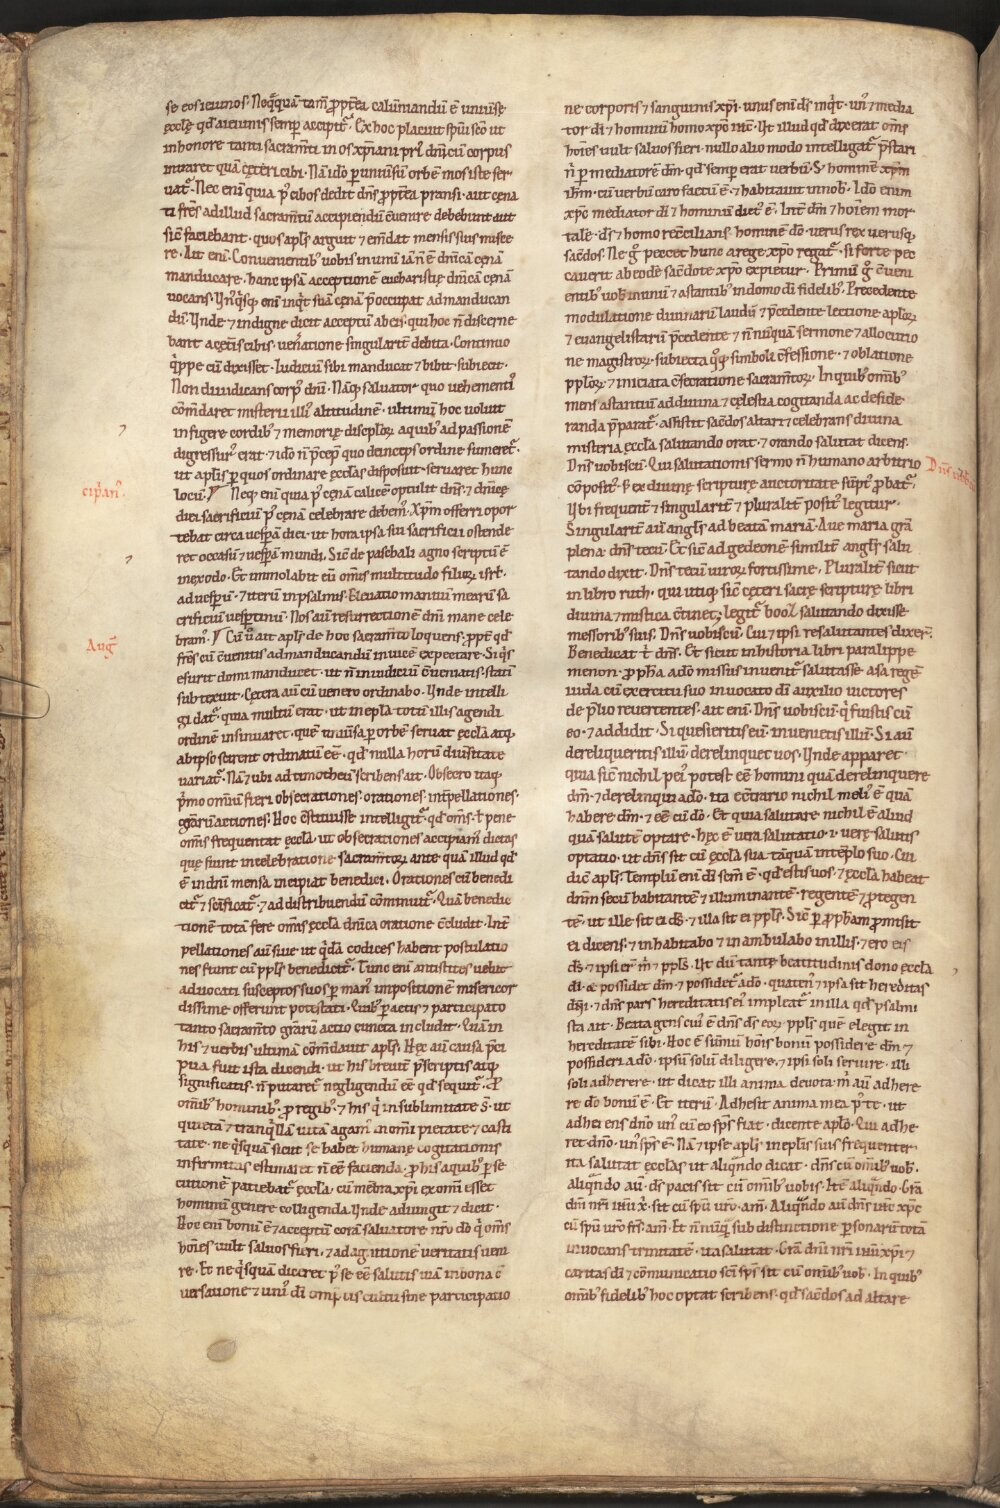 se eos ieiunos. Neq̃quā tam̄ p̱p̱tea calumniandū ē uniuse
ęccłę qđ a ieiunis semp̱ accipit̃. Ex hoc placuit spūi sc̄o ut
in honore tanti sacram̄ti in os xp̄iani pri᷒ dn̄icū corpus
intraret quā cęteri cibi. Nā ido p̱ uniuesū orbē mos iste ser
uat̃. Nec eni quia p᷒ cibos dedit dn̄s p̱p̱tea pransi aut cęna
ti fr̄s ad illud sacram̄tū accipiendū c̄uenire debebunt aut
sic̄ faciebant quos apłs arguit ⁊ em̄dat mensis suis misce
re. Ait eni. Conuenientib᷒ uobis in unū iā n̄ ē dn̄icā cęnā
manducare. hanc ipsā acceptionē eucharistię dn̄icā cęnā
uocans. Vn᷒q̇sq̨ eni inq̇t suā cęnā p̄occupat ad manducan
dū. Vnde ⁊ indigne dicit acceptū ab eis qui hoc n̄ discerne
bant a cęt̄is cibis ueñatione singularit̄ debita. Continuo
q̇ppe cū dixisset. Iudiciū sibi manducat ⁊ bibit. subiecit.
Non diiudicans corp᷒ dn̄i. Nāq̨ saluator quo uehementi᷒
com̄daret misterii illi᷒ altitudinē. ultimū hoc uoluit
infigere cordib᷒ ⁊ memorię discipłoꝝ a quib᷒ ad passionē
digressur᷒ erat ⁊ ido n̄ p̄cep̄ quo deinceps ordine sumeret̃.
ut apłis p̱ quos ordinare ęccłas disposuit seruaret hunc
locū. Neq̨ eni quia p᷒ cęnā calicē optulit dn̄s ⁊ dn̄icę
cip̱an᷒.
diei sacrificiū p᷒ cęnā celebrare debem᷒. Xp̄m offerri opor
tebat circa uesp̱ā diei ut hora ipsa sui sacrificii ostende
ret occasū ⁊ uesp̱ā mundi. Sic̄ de paschali agno scriptū ē
in exodo. Et immolabit eū omīs multitudo filioꝝ isrł.
ad uesp̱ū. ⁊ iterū in psalmis. Eleuatio manuū mearū sa
crificiū uesp̱tinū. Nos aū resurrectionē dn̄i mane cele
bram᷒. Cū ũ ait apłs de hoc sacram̄to loquens. p̱pt̄ qđ
Aug̃
fr̄s cū c̄uenitis ad manducandū inuicē expectate. Si q̇s
esurit domi manducet. ut n̄ in iudiciū c̄ueniatis. stati
subtexuit. Cętera aū cū uenero ordinabo. Vnde intelli
gi dat̃. quia multū erat ut in epła totū illis agendi
ordinē insinuaret. quē uniuesa p̱ orbē seruat ęccła atq̨
ab ipso scirent ordinatū eē. qđ nulla horū diuesitate
uariat̃. Nā ⁊ ubi ad timotheū scribens ait. Obsecro itaq̨
ṗmo omniū fieri obsecrationes orationes int̄pellationes.
grārū actiones. Hoc c̄stituisse intelligit̃. qđ omīs ł pene
omīs frequentat ęccła. ut obsecrationes accipiam᷒ dictas
quę fiunt in celebratione sacram̄toꝝ ante quā illud qđ
ē in dn̄i mensa incipiat benedici. Orationes cū benedi
cit̃ ⁊ sc̄ificat̃ ⁊ ad distribuendū comminuit̃. Quā benedic
tionē totā fere omīs ęccła dn̄ica oratione c̄cludit. Int̄
pellationes aū fiunt ut q̇dā codices habent postulatio
nes fiunt cū ppłs benedicit̃. Tunc eni antistites uelut
aduocati susceptos suos p̱ man᷒ impositionē misericor
dissime offerunt potestati. Quib᷒ p̱actis ⁊ participato
tanto sacram̄to grārū actio cuncta includit. Quā in
his ⁊ uerbis ultimā com̄dauit apłs. Hęc aū causa p̄ci
pua fuit ista dicendi. ut his breuit̄ p̄scriptis atq̨
significatis. n̄ putaret̃ negligendū eē qđ sequit̃. P̱
omīb᷒ hominib᷒ p̱ regib᷒ ⁊ his q̇ in sublimitate s̄. ut
quietā ⁊ tranq̇llā uitā agam᷒ in omi pietate ⁊ casti
tate. ne q̇squā sicut se habet humanę cogitationis
infirmitas estimaret n̄ eē facienda p̱ his a quib᷒ p̱se
cutionē patiebat̃ ęccła. cū mēbra xp̄i ex omī esset
hominū genere colligenda. Vnde adiungit ⁊ dicit.
Hoc eni bonū ē ⁊ acceptū corā saluatore nr̄o do q̇ omīs
hoīes uult saluos fieri. ⁊ ad agnitionē ueritatis ueni
re. Et ne q̇squā diceret p̱se eē salutis uiā in bona c̄
uersatione ⁊ uni᷒ dī omīp̱tis cultu sine participatio
ne corporis ⁊ sanguinis xp̄i. unus eni ds̄ inq̇t. un᷒ ⁊ media
tor dī ⁊ hominū homo xp̄c ih̄c. Vt illud qđ dixerat omīs
hoīes uult saluos fieri. nullo alio modo intelligat̃ p̄stari
n̄ p̱ mediatorē dm̄ qđ semp̱ erat uerbū. S; hominē xp̄m
ih̄m. cū uerbū caro factū ē ⁊ habitauit in nob. Ido enim
xp̄c mediator dī ⁊ hominū dict᷒ ē. Int̄ dm̄ ⁊ hoīem mor
talē. ds̄ ⁊ homo reconcilians hominē do. uerus rex uerusq̨
sac̄dos. Ne g̊ peccet hunc a rege xp̄o regat̃. si forte pec
cauerit ab eodē sac̄dote xp̄o expietur. Primū g̊ c̄ueni
entib᷒ uob in unū ⁊ astantib᷒ in domo dī fidelib᷒. Precedente
modulatione diuinarū laudū ⁊ p̄cedente lectione apłoꝝ
⁊ euangelistarū p̄cedente ⁊ n̄ nūquā sermone ⁊ allocutio
ne magistroꝝ. subiecta q̊q̨ simboli c̄fessione. ⁊ oblatione
ppłoꝝ ⁊ iniciata c̄secratione sacram̄toꝝ. In quib᷒ omīb᷒
mens astantiū ad diuina ⁊ cęlestia cogitanda ac deside
randa p̄parat̃. assistit sac̄dos altari ⁊ celebrans diuina
misteria ęccła salutando orat. ⁊ orando salutat dicens.
Dn̄s uobiscū. Qui salutationis sermo n̄ humano arbitrio
Dn̄s uobi
cōposit᷒. s; ex diuinę scripturę auctoritate sūpt᷒ p̱bat̃.
Vbi frequent̄ ⁊ singularit̄ ⁊ pluralit̄ posit᷒ legitur.
Singularit̄ aū angłs ad beatā mariā. Aue maria grā
plena dn̄s tecū. Et sic̄ ad gedeonē similit̄ angłs salu
tando dixit. Dn̄s tecū uiroꝝ fortissime. Pluralit̄ sicut
in libro ruth. qui utiq̨ sic̄ cęteri sacrę scripturę libri
diuina ⁊ mistica c̄tinet; legit̃ booz salutando dixisse
messorib᷒ suis. Dn̄s uobiscū. Cui ⁊ ipsi resalutantes dixer̄.
Benedicat t̄ dn̄s. Et sicut in historia libri paralippe
menon. p̱pha a do missus inuenit̃ salutasse asa regē
iuda cū exercitu suo inuocato dī auxilio uictores
de p̄lio reuertentes. ait eni. Dn̄s uobiscū. q̇ fuistis cū
eo. ⁊ addidit. Si quesieritis eū inuenietis illū. Si aū
dereliqueritis illū derelinquet uos. Vnde apparet
quia sic̄ nichil pei᷒ potest eē homini quā derelinquere
dm̄ ⁊ derelinqui a do. ita econtrario nichil meli᷒ ē quā
habere dm̄ ⁊ eē cū do. Et quia salutare nichil ē aliud
quā salutē optare. hęc ē uera salutatio. i. uerę salutis
optatio. ut dn̄s sit cū ęccła sua tāquā in templo suo. Cui
dic̄ apłs. Templū eni dī sc̄m ē. qđ estis uos. ⁊ ęccła habeat
dn̄m secū habitantē ⁊ illuminantē. regentē ⁊ p̱tegen
tē. ut ille sit ei ds̄. ⁊ illa sit ei ppłs. Sic̄ p̱ p̱pham p̱misit
ei dicens. ⁊ inhabitabo ⁊ inambulabo in illis. ⁊ ero eis
ds̄. ⁊ ipsi er̄ m̊ ⁊ ppłs. Vt dū tantę beatitudinis dono ęccła
dī ⁊ possidet dm̄ ⁊ possidet̃ a do. quaten᷒ ⁊ ipsa sit hereditas
dn̄i. ⁊ dn̄s pars hereditatis ei᷒ impleat̃ in illa qđ psalmi
sta ait. Beata gens cui᷒ ē dn̄s ds̄ eoꝝ. ppłs quē elegit in
hereditatē sibi. Hoc ē sūmū hoīs bonū possidere dm̄ ⁊
possideri a do. ipsū solū diligere. ⁊ ipsi soli seruire. illi
soli adherere. ut dicat illi anima deuota. m̊ aū adhere
re do bonū ē. Et iterū. Adhesit anima mea p᷒ te. ut
adherens dn̄o un᷒ cū eo sp̄s fiat. dicente apło. Qui adhe
ret dn̄o. un᷒ sp̄s ē. Nā ⁊ ipse apłs in epłis suis frequenter
ita salutat ęccłas ut aliqn̄do dicat. dn̄s cū omīb᷒ uob.
Aliqn̄do aū. ds̄ pacis sit cū omīb᷒ uobis. Itē aliqn̄do. Grā
dn̄i nr̄i ihū x̄. sit cū spū uro. am̄. Aliqn̄do aū dn̄s ih̄c xp̄c
cū spū uro frs̄. am̄. Et n̄ nūq̄ sub distinctione p̱sonarū totā
inuocans trinitatē. ita salutat. Grā dn̄i nr̄i ihū xp̄i ⁊
caritas dī ⁊ cōmunicatio sc̄i sp̄s sit cū omīb᷒ uob. In quib᷒
omīb᷒ fidelib᷒ hoc optat scribens. qđ sac̄dos ad altare